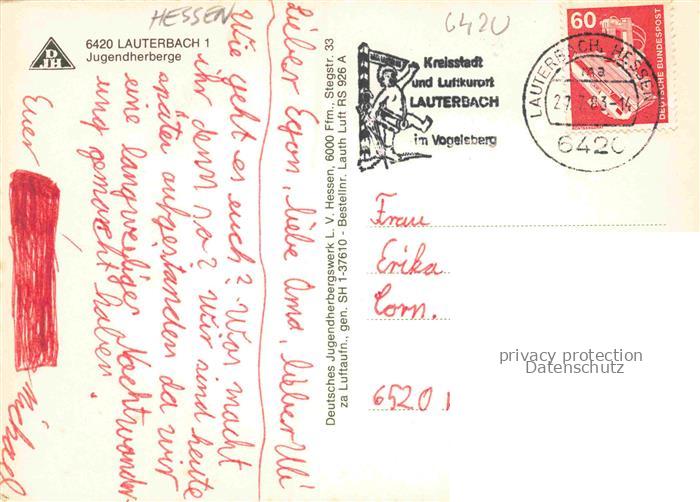 HESSEN
6420 LAUTERBACH 1
Jugendherberge
DJH
Lieber Egon, liebe Oma, lieber Uli
Wie geht es euch? Was macht
ihr denn so? Wir sind heute
später aufgestanden da wir
eine langweilige Nachtwander-
ung gemacht haben.
Euer
Michael
Deutsches Jugendherbergswerk L. V. Hessen, 6000 Ffm., Stegstr. 33
za Luftaufn., gen. SH 1-37610 - Bestellnr. Lauth Luft RS 926 A
6420
Kreisstadt
und Luftkurort
LAUTERBACH
im Vogelsberg
LAUTERBACH, HESSEN
ma
-14
6420
60
DEUTSCHE BUNDESPOST
Frau
Erika
Corn.
6520 1
privacy protection
Datenschutz